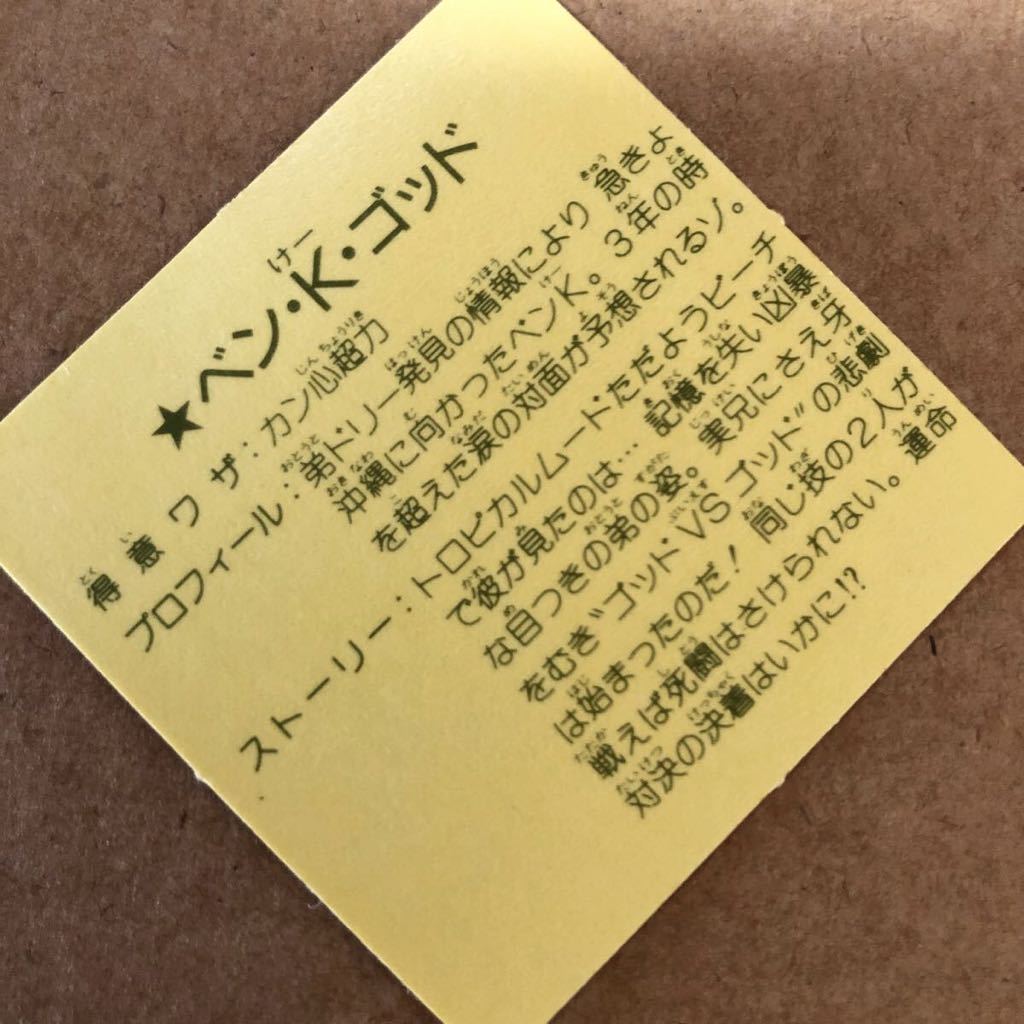 ★ベン・K・ゴッド
得意ワザ：カン心超力
プロフィール：弟ドリー発見の情報により急きよ
沖縄に向かったベンK。3年の時
を超えた涙の対面が予想されるゾ。
ストーリー：トロピカルムードただようビーチ
で彼が見たのは…記憶を失い凶暴
な目つきの弟の姿。実兄にさえ牙
をむき“ゴッドVSゴッド”の悲劇
は始まったのだ！同じ技の2人が
戦えば死闘はさけられない。運命
対決の決着はいかに!?